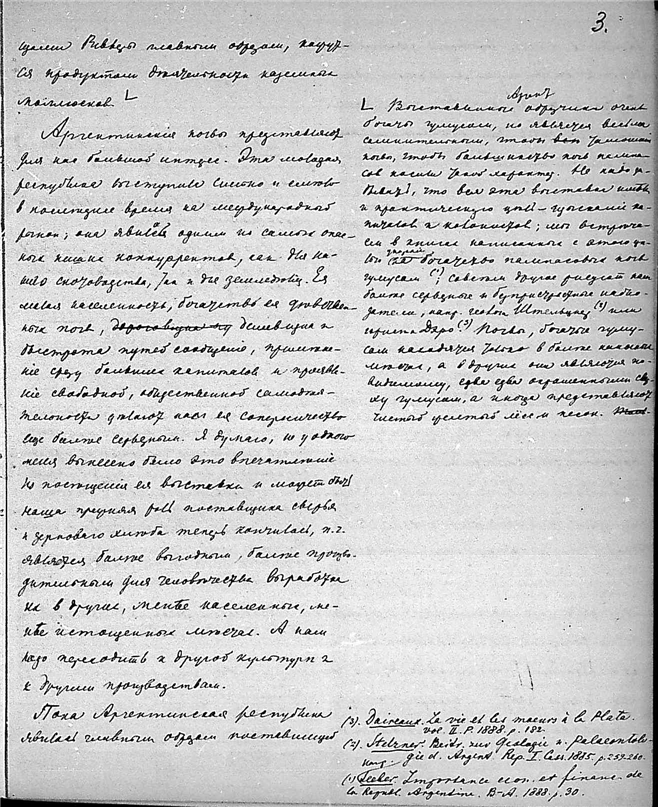 3.
главным образом,
ся продуктами деятельности наземных
моллюсков. L
Аргентинскія почвы представляют
для нас большой интерес. Эта молодая
республика выступила сильно и смело
в последнее время на международный
рынок; она явилась одним из самых опас-
ных наших конкуррентов, как для на-
шего скотоводства, так и для земледелія. Ея
малая населенность, богатство ея девствен-
ных почв, дешевизна и
быстрота путей сообщенія,
ніе сразу больших капиталов и проявле-
ніе свободной, общественной самодея-
тельности делают нам ея соперничество
еще более серьезным. Я думаю, не у одного
меня вынесено было это впечатленіе
из посещенія ея выставки и может быть
наша прежняя роль поставщика сырья
и зернового хлеба теперь кончилась, п. ч.
является более выгодным, более произво-
дительным для человечества выработка
их в других, менее населенных, ме-
нее истощенных местах. А нам
надо переходить к другой культуре и
к другим производствам.
Пока Аргентинская республика
явилась главным образом поставщицей
L Выставленные образчики очень
богаты гумусом, но является весьма
сомнительным, чтобы
почв, чтобы большинство почв пампа-
сов носили такой характер. Не надо за-
бывать, что вся эта выставка имела
и практическую цель - ка-
питалов и колонистов; мы встреча-
ем в книгах написанных с этою це-
лью богатство пампасовых почв
гумусом (¹); совсем другое рисуют нам
более серьезные и безпристрастные наблю-
датели, напр. геолог Штельцнер (²) или
юрист Дэро (³). Почвы, богатые гуму-
сом находятся только в более низких
местах, а в других они являются по-
видимому, едва едва окрашенными свер-
ху гумусом, а иногда представляют
чистый желтый лёсс и песок.
(3). Daireaux. La vie et les moeurs à la Plata.
vol. II. P. 1888. p. 182.
(2). Stelzner. Beitr. zur Geologie u. palaeontolo-
gie d. Argent. Rep. I. Cass. 1885. p. 259-260.
(1) Seeber. Importance econ. et financ. de
la Republ. Argentine. B-A. 1888. p. 30.